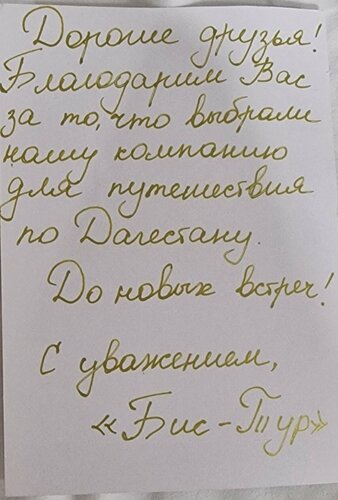 Дорогие друзья!
Благодарим Вас
за то, что выбрали
нашу компанию
для путешествия
по Дагестану.
До новых встреч!
С уважением,
«Бис-Тур»